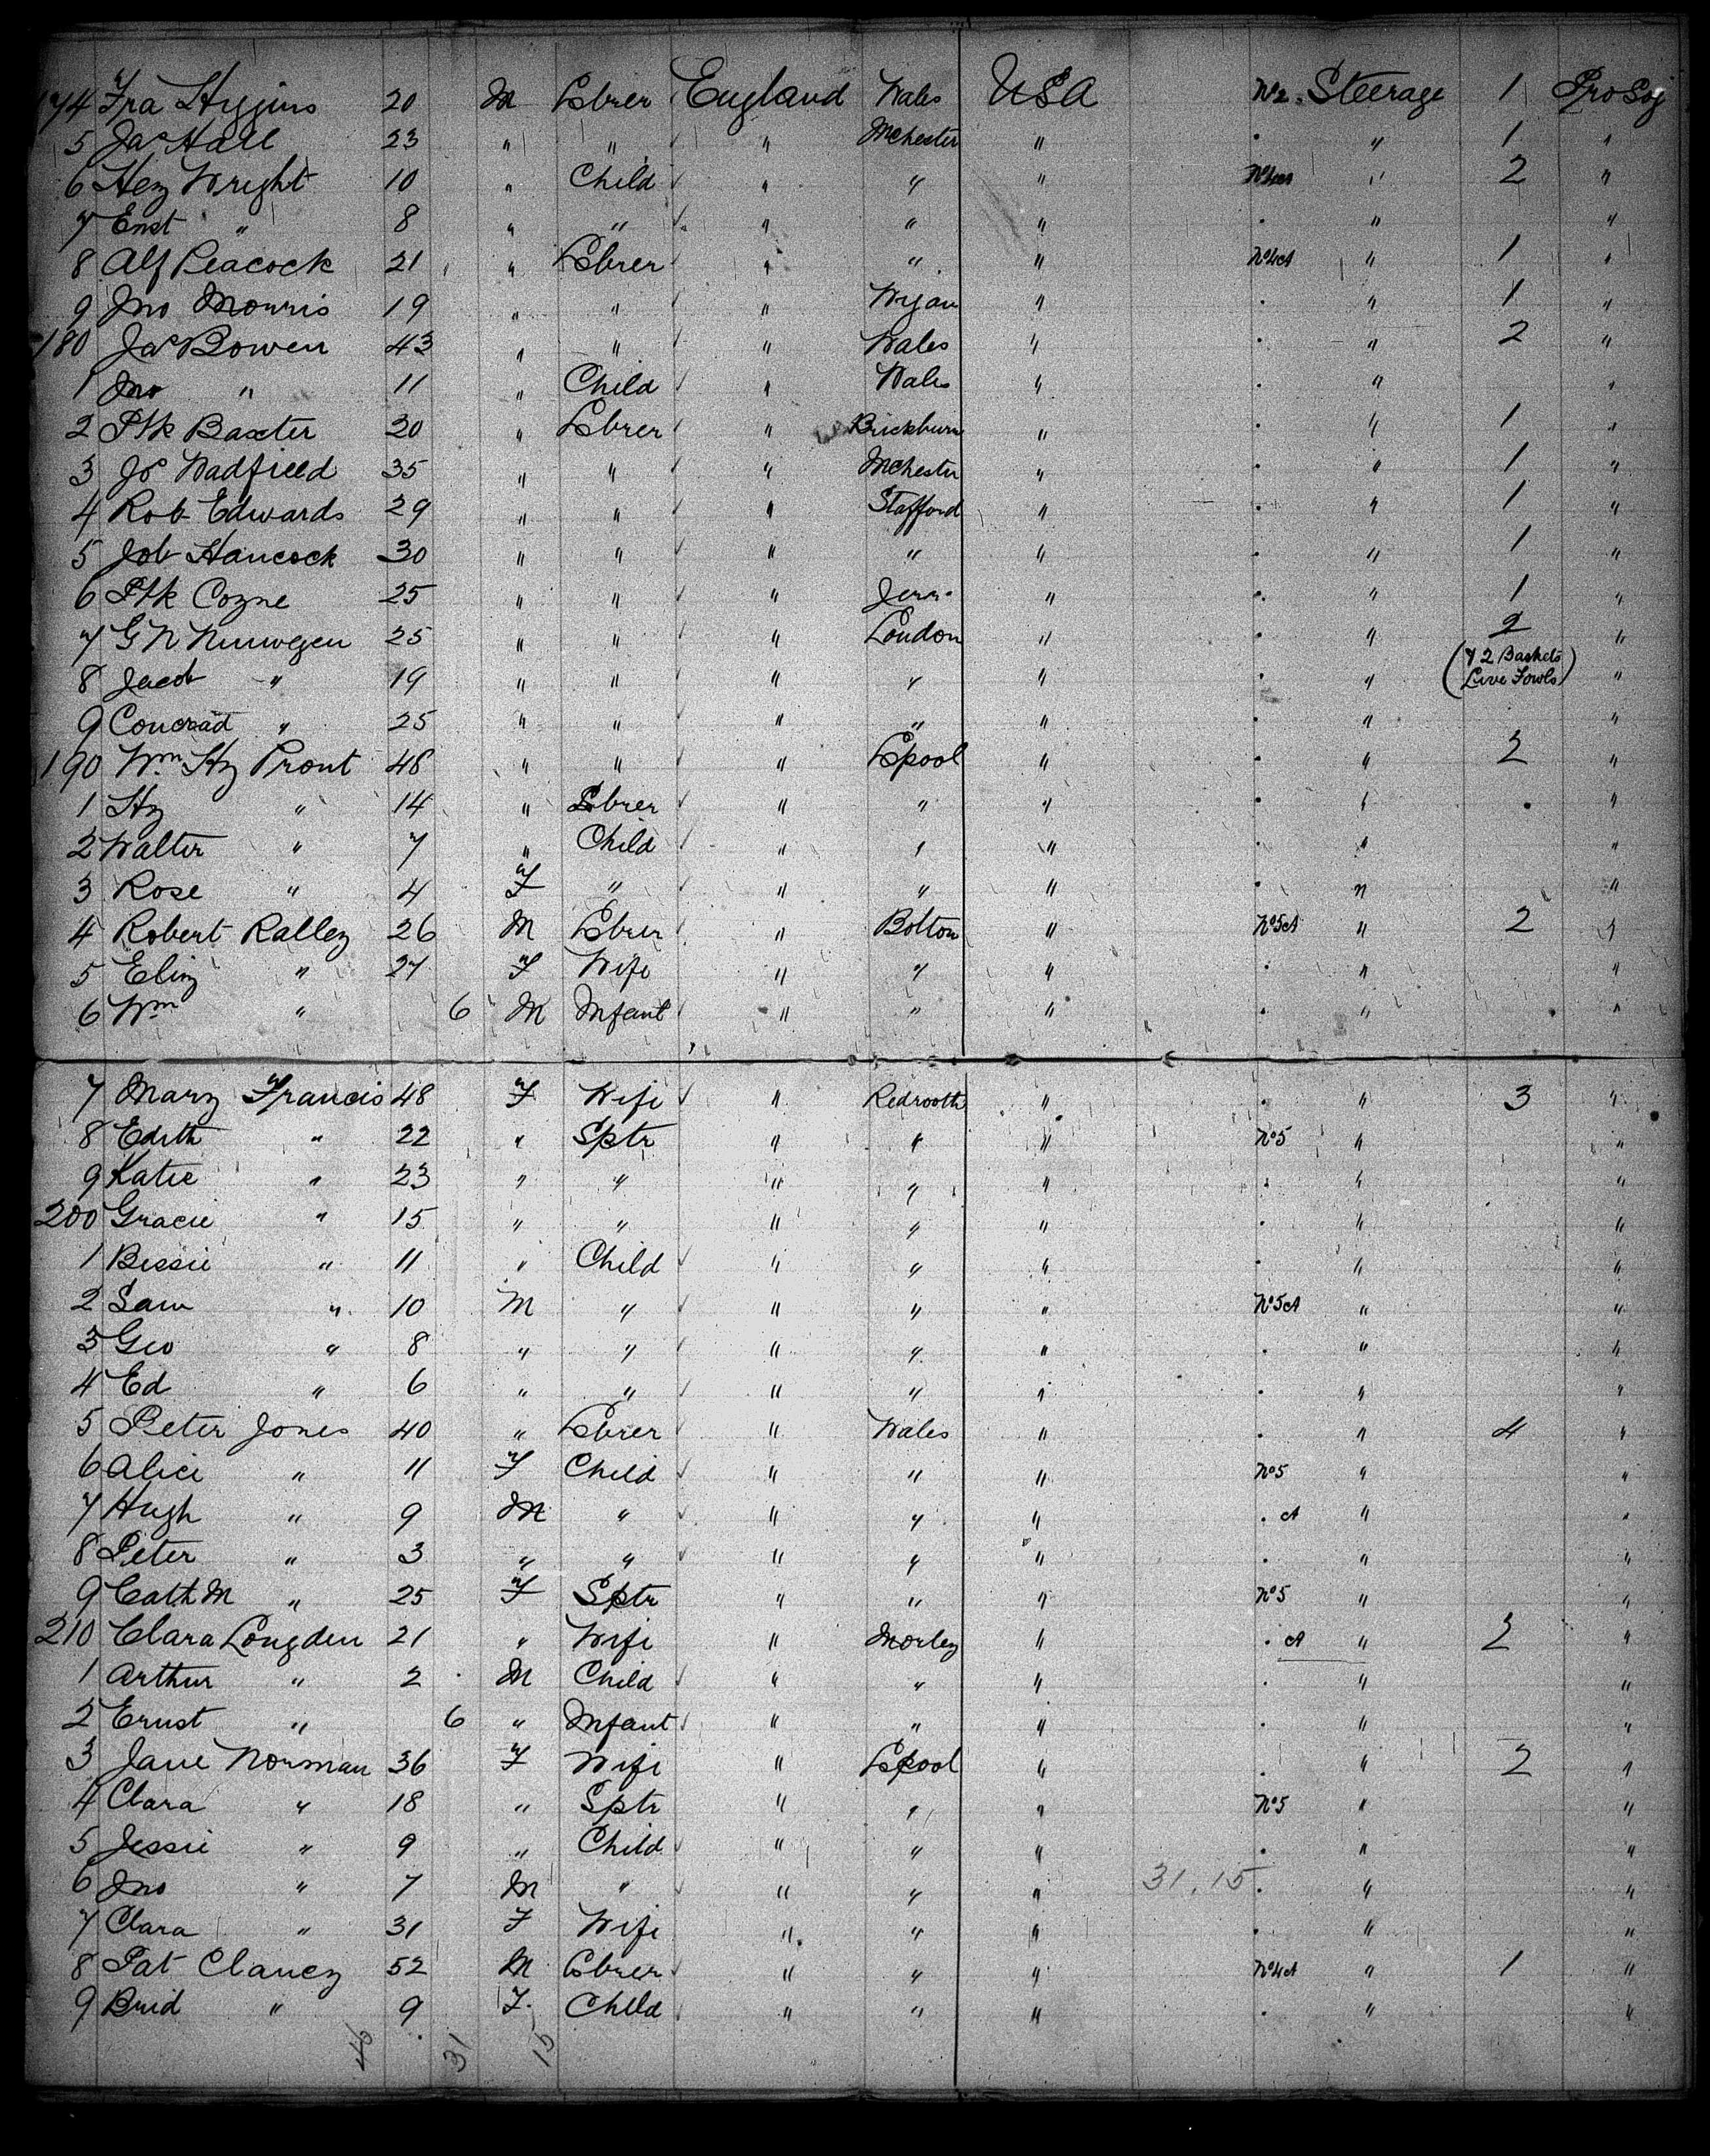 174 Fra Higgins 20 M Lbrer England Wales USA No 2. Steerage 1 Pro Soj
5 Jas Hall 23 " " " Mchester " . " 1 "
6 Hey Wright 10 " Child " " " " 2 "
7 Enst " 8 " " " " " . " "
8 Alf Peacock 21 " Lbrer " " " No 4 A " 1 "
9 Jno Morris 19 " " " Wgan " . " 1 "
180 Jas Bowen 43 " " " Wales " . " 2 "
1 Jno " 11 " Child " Wales " . " "
2 Ptk Baxter 20 " Lbrer " Brickburn " . " 1 "
3 Js Wadfield 35 " " " Mchester " . " 1 "
4 Rob Edwards 29 " " " Stafford " . " 1 "
5 Job Hancock 30 " " " " " . " 1 "
6 Ptk Cozne 25 " " " " . " 1 "
7 G N 25 " " " London " . " 2 "
8 Jacob " 19 " " " " " . " (& 2 Baskets Live Fowls) "
9 Concrad " 25 " " " " " . " "
190 Wm Hy Prout 48 " " " Lpool " . " 2 "
1 Hy " 14 " Lbrer " " " . " "
2 Walter " 7 " Child " " " . " "
3 Rose " 4 F " " " " . " "
4 Robert Ralley 26 M Lbrer " Bolton " No 5 A " 2 "
5 Eliz " 27 F Wife " " " . " "
6 Wm " 6 M Infant " " " . " "
7 Mary Francis 48 F Wife " Redrooth " . " 3 "
8 Edith " 22 " Sptr " " " No 5 " "
9 Katie " 23 " " " " " . " "
200 Gracie " 15 " " " " " . " "
1 Bessie " 11 " Child " " " . " "
2 Sam " 10 M " " " " No 5 A " "
3 Geo " 8 " " " " " . " "
4 Ed " 6 " " " " " . " "
5 Peter Jones 40 " Lbrer " Wales " . " 4 "
6 Alice " 11 F Child " " " No 5 " "
7 Hugh " 9 M " " " " . A " "
8 Peter " 3 " " " " " . " "
9 Cath M " 25 F Sptr " " " No 5 " "
210 Clara Longden 21 " Wife " Morley " . A " 2 "
1 Arthur " 2 M Child " " " . " "
2 Ernst " 6 " Infant " " " . " "
3 Jane Norman 36 F Wife " Lpool " . " 2 "
4 Clara " 18 " Sptr " " " No 5 " "
5 Jessie " 9 " Child " " " . " "
6 Jno " 7 M " " " " 31.15 . " "
7 Clara " 31 F Wife " " " . " "
8 Pat Clancy 52 M Lbrer " " " No 4 A " 1 "
9 Brid " 9 F Child " " " . " "
46 31 15